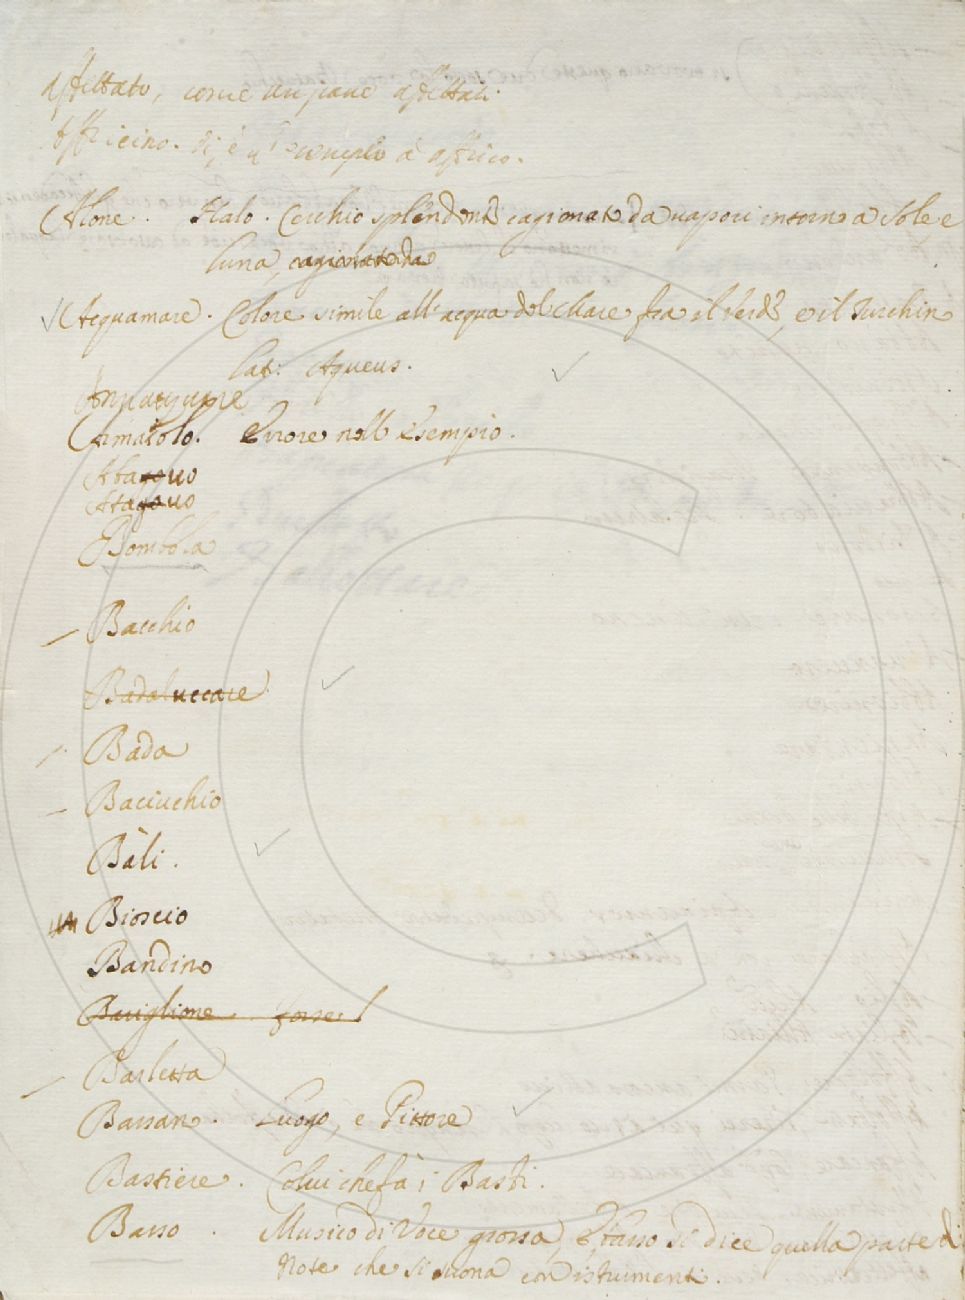 affettato, come un pane affettati
Afficino. di, è un esempio a affrico.
Alone. Halo. Cerchio splendente cagionato da vapori intorno a Sole e
luna, cagionato da
Acquamare. Colore simile all'acqua del Mare fra il verde, e il Turchin
Lat: Aqueus.
Annacquare
Armaiolo. Errore nell'Esempio.
Bombola
Bacchio
Badaluccare
Bada
Baciucchio
Bàli.
Bioscio
Bandino
Baviglione forse l
Barletta
Bassan. Luogo, e Pittore
Bastiere. Colui che fà i Basti.
Basso. Musico di Voce grossa, e basso si dice quella parte di
Note che si suona con istrumenti.